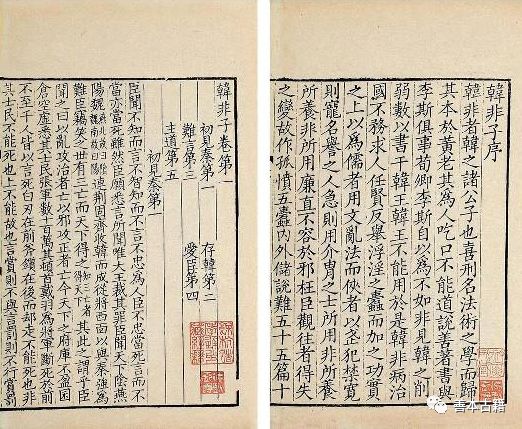 韓非子序
韓非者韓之諸公子也喜刑名法術之學而歸
其本於黃老其為人吃口不能道說善著書與
李斯俱事荀卿李斯自以為不如非見韓之削
弱數以書干韓王韓王不能用於是韓非病治
國不務求人任賢反舉浮淫之蠹而加之功實
之上以為儒者用文亂法而俠者以武犯禁寬
則寵名譽之人急則用介冑之士所用非所養
所養非所用廉直不容於邪枉臣觀往者得失
之變故作孤憤五蠹內外儲說難五十五篇十
韓非子卷第一
初見秦第一 存韓第二
難言第三 愛臣第四
主道第五
初見秦第一
臣聞不知而言不智知而不言不忠為人臣不忠當死言而不
當亦當死雖然臣願悉言所聞唯大王裁其罪臣聞天下陰燕
陽魏連荊固齊收韓而成從將西面以與秦強為
難臣竊笑之世有三亡而天下得之其此之謂乎臣
聞之曰以亂攻治者亡以邪攻正者亡今天下之府庫不盈囷
倉空虛悉其士民張軍數十百萬其頓首戴羽為將軍斷死於前
不至千人皆以言死白刃在前斧鑕在後而卻走不能死也非
其士民不能死也上不能故也言賞則不與言罰則不行賞罰
善本古籍